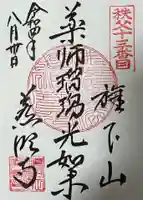 秩父十三番
旗下山
薬師瑠璃光如来
慈眼寺
令和四年
八月廿日